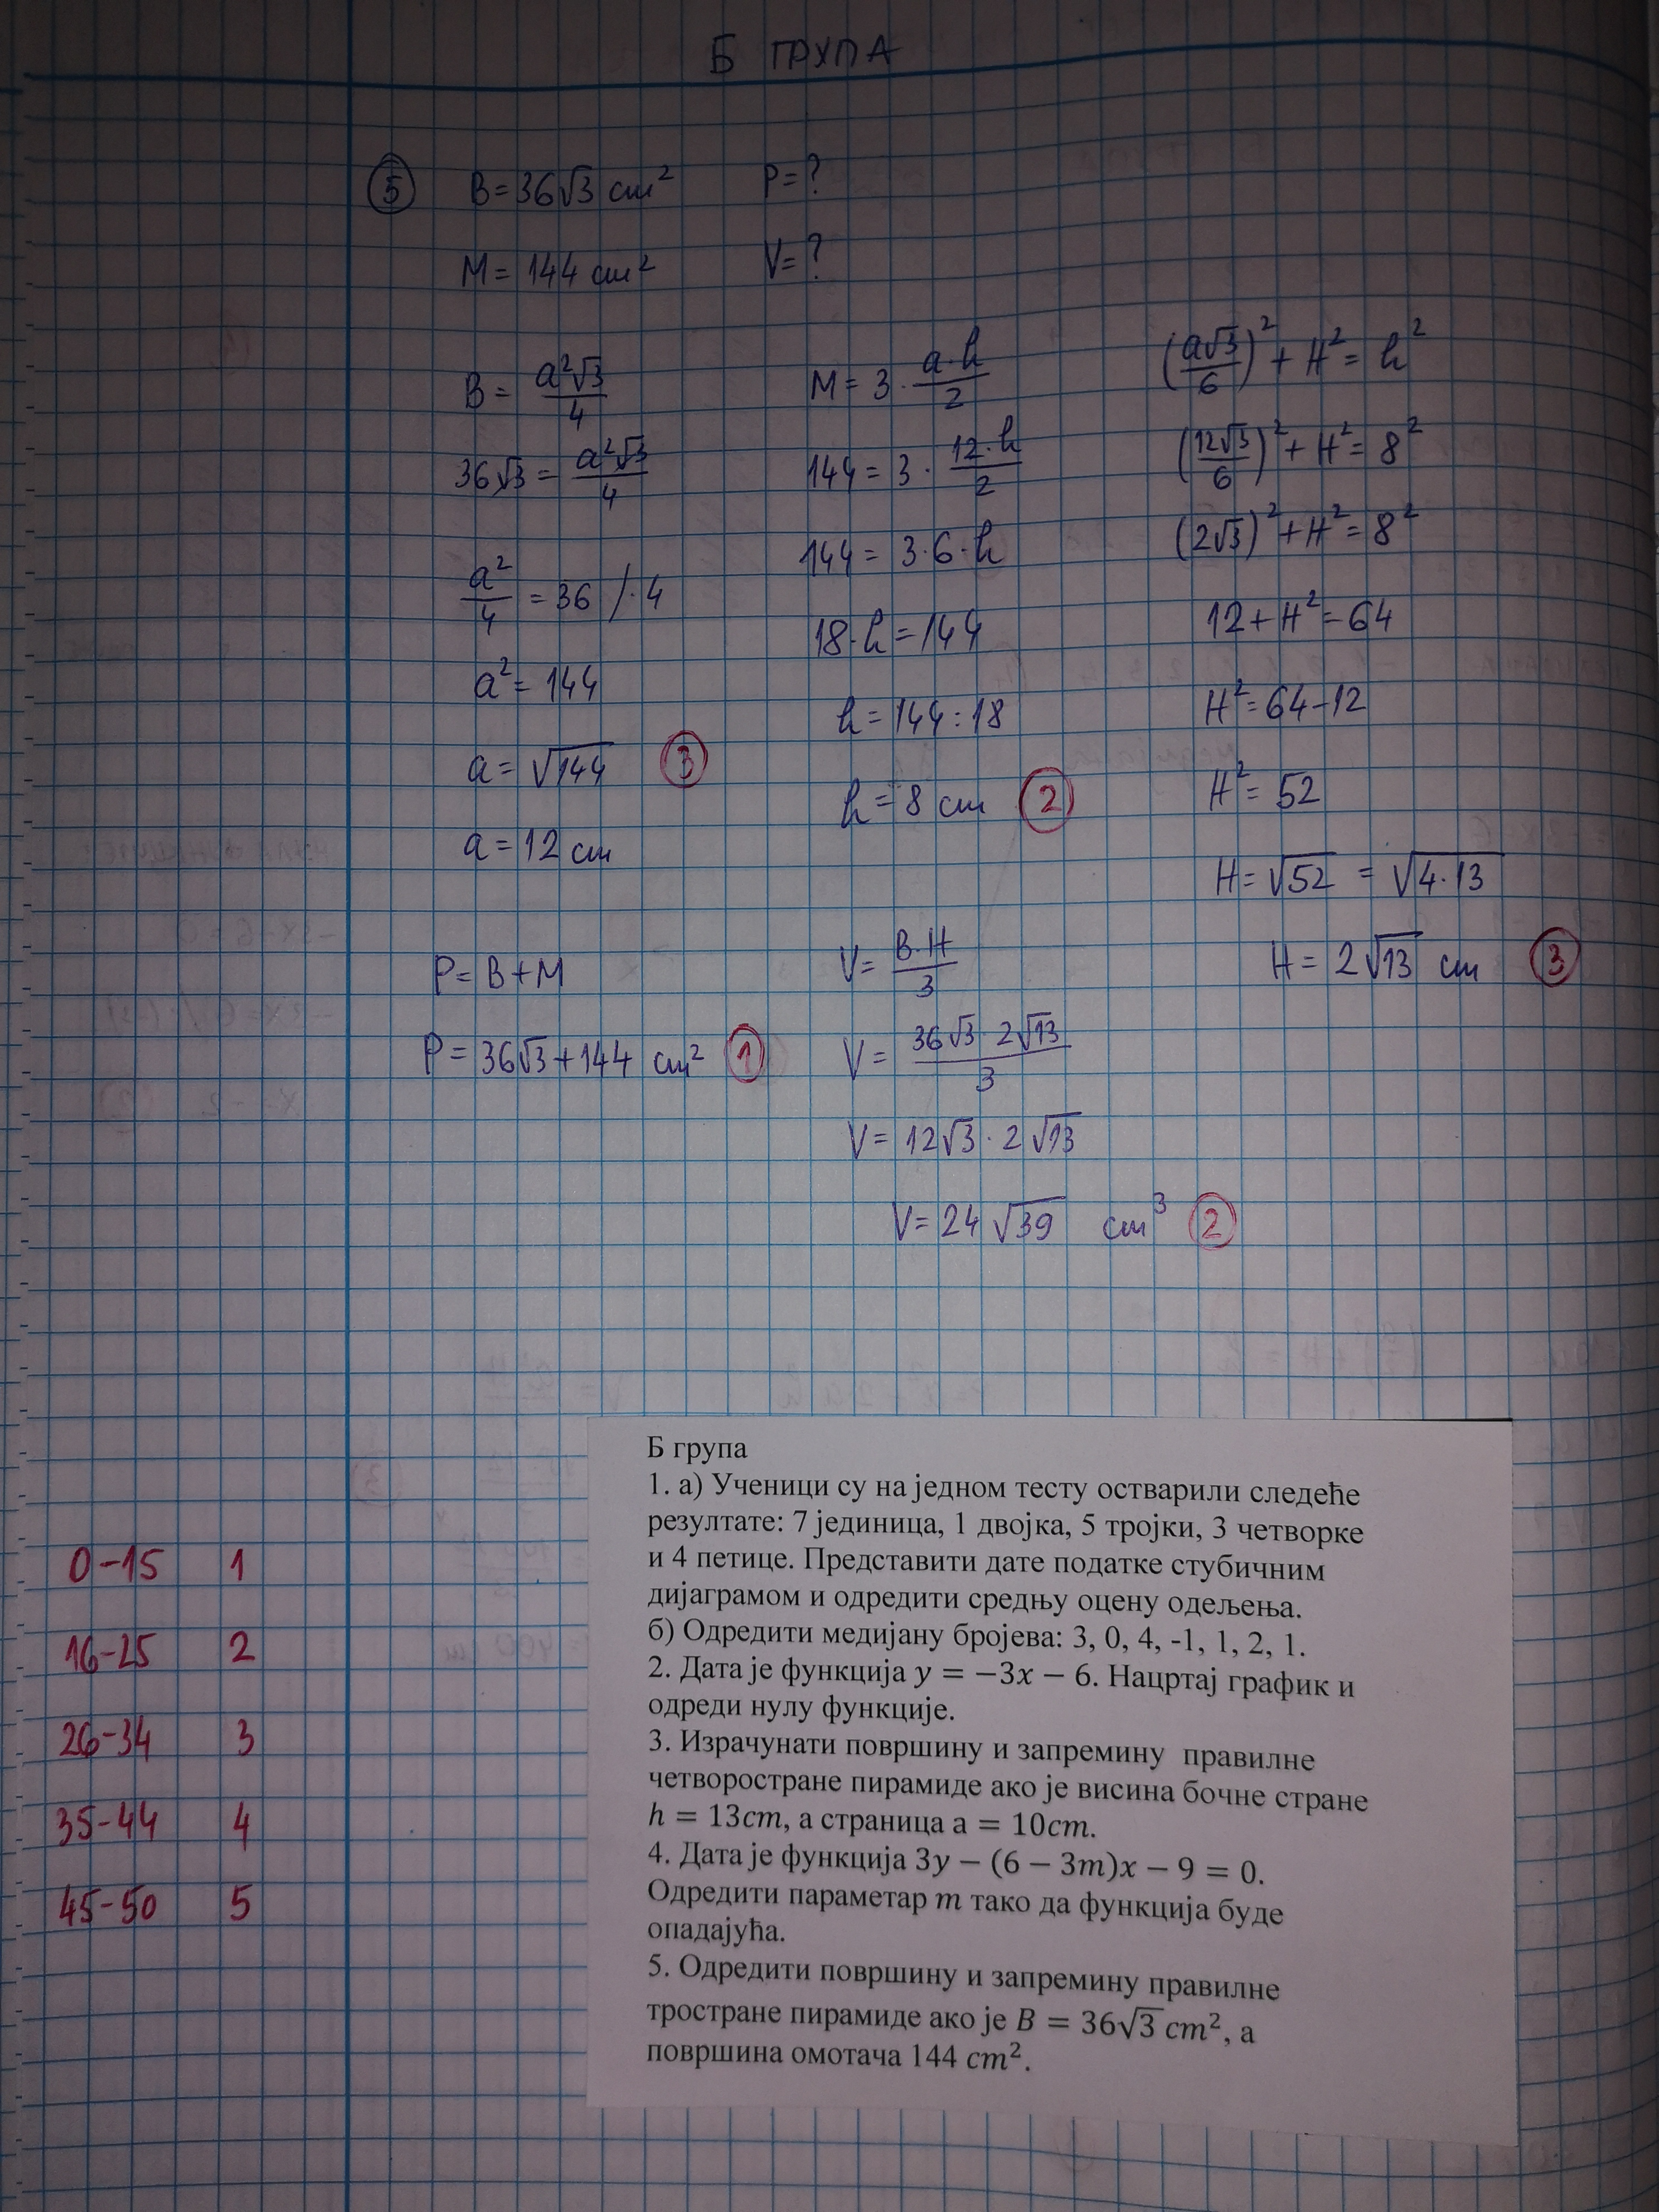 Б ГРУПА
5 B=36√3 cm² P=?
M=144 cm² V=?
B= a²√3/4
36√3= a²√3/4
a²/4 =36 /·4
a²=144
a=√144 3
a=12 cm
M=3· a·h/2
144=3· 12·h/2
144=3·6·h
18·h=144
h=144:18
h=8 cm 2
(a√3/6)²+H²=h²
(12√3/6)²+H²=8²
(2√3)²+H²=8²
12+H²=64
H²=64-12
H²=52
H=√52 =√4·13
H=2√13 cm 3
P=B+M
P=36√3+144 cm² 1
V= B·H/3
V= 36√3·2√13/3
V=12√3·2√13
V=24√39 cm³ 2
0-15 1
16-25 2
26-34 3
35-44 4
45-50 5
Б група
1. а) Ученици су на једном тесту остварили следеће
резултате: 7 јединица, 1 двојка, 5 тројки, 3 четворке
и 4 петице. Представити дате податке стубичним
дијаграмом и одредити средњу оцену одељења.
б) Одредити медијану бројева: 3, 0, 4, -1, 1, 2, 1.
2. Дата је функција y = −3x − 6. Нацртај график и
одреди нулу функције.
3. Израчунати површину и запремину правилне
четворостране пирамиде ако је висина бочне стране
h = 13cm, а страница a = 10cm.
4. Дата је функција 3y − (6 − 3m)x − 9 = 0.
Одредити параметар m тако да функција буде
опадајућа.
5. Одредити површину и запремину правилне
тростране пирамиде ако је B = 36√3 cm², а
површина омотача 144 cm².